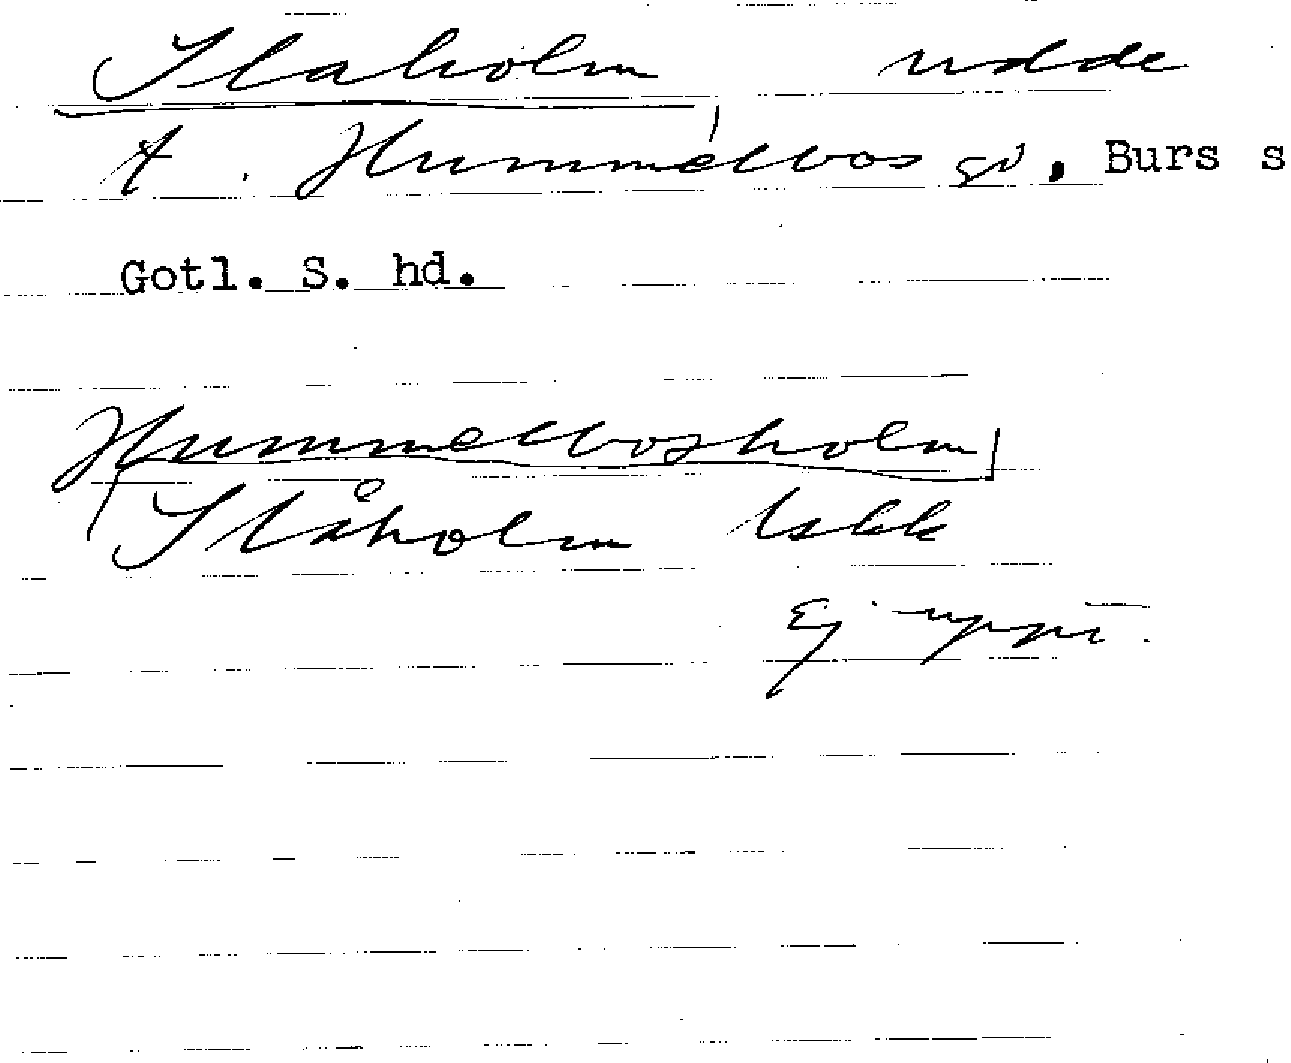 Slaholm udde
t. Hummelbos gd, Burs s
Gotl. S. hd.
Hummelbosholm
Slåholm
Ej uppt.